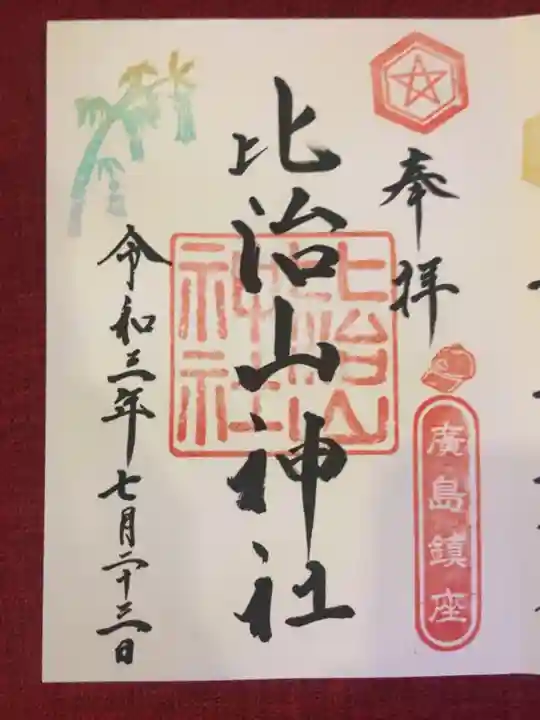 奉拝
廣島鎮座
比治山神社
比治山
神社
令和三年七月二十三日